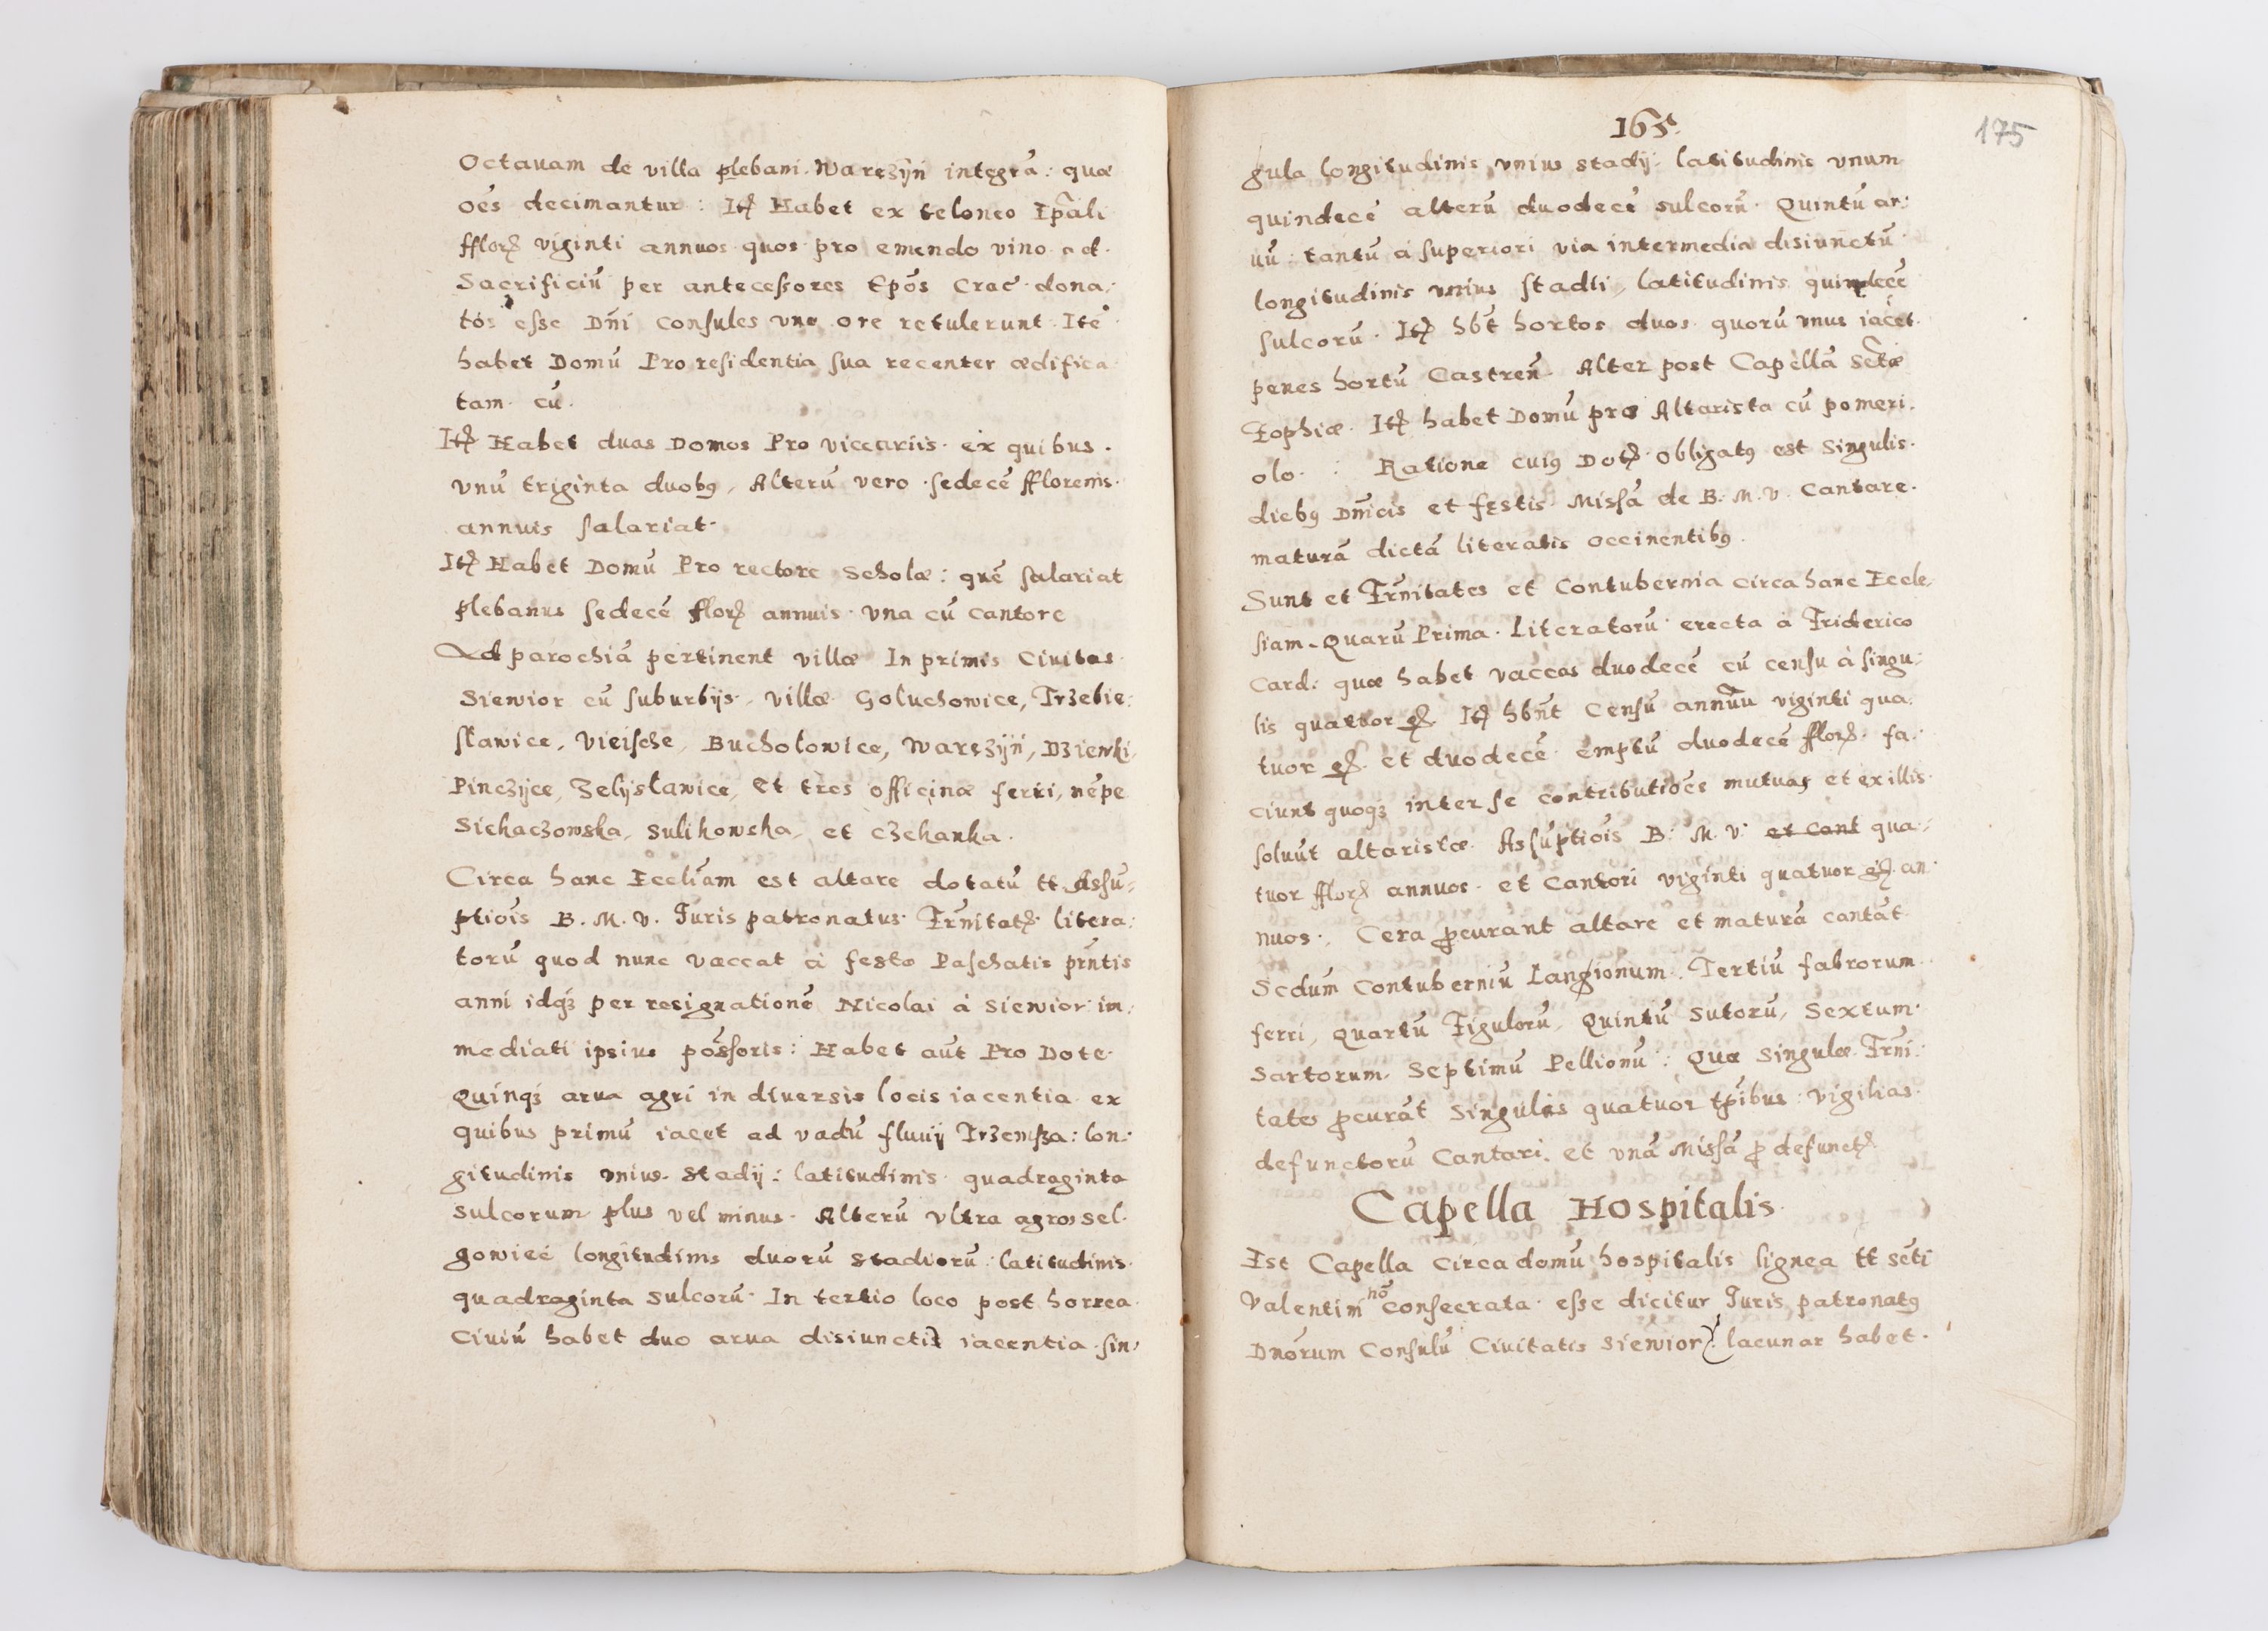 Octauam de villa plebani Waręzÿn integrã: quæ
oẽs decimantur: Itẽ Habet ex teloneo Ep̃ali
fflor̃ viginti annuos quos pro emendo vino ad
Sacrificiũ per antecessores Ep̃os Crac dona,
tos esse Dñi Consules vno ore retulerunt Itẽ
habet Domũ Pro residentia sua recenter ædifica
tam cũ
Itẽ Habet duas Domos Pro viceariis ex quibus
vnũ triginta duobꝰ, Alterũ vero sedecẽ fflorenis
annuis salariat
Itẽ Habet Domũ Pro rectore Scholæ: quẽ salariat
plebanus sedecẽ flor̃ annuis vna cũ cantore
Ad parochiã pertinent villæ In primis Ciuitas
Siewior cũ suburbijs, villæ Goluchowice, Trzebie:
sławice, Vieische, Bucholowice, Waręzÿn, Dziewki,
Pinczÿce, Zelÿslawice, Et tres officinæ ferri, nẽpe
Sichaczowska, Sulikowska, et Czekanka.
Circa hanc Eccliam est altare dotatũ tt Assũ=
ptiõis B. M. V. Juris patronatus Fr̃nitat̃ litera:
torũ quod nunc vaccat à festo Paschatis pr̃ntis
anni idqꝫ per resignationẽ Nicolai à Siewior im,
mediati ipsius poss̃oris: Habet aũt Pro Dote
Quinqꝫ arua agri in diuersis locis iacentia ex
quibus primũ iacet ad vadũ fluuij Trzemsza: lon:
gitudinis vnius Stadij: latitudinis quadraginta
Sulcorum plus vel minus. Alterũ vltra agros sel.
gowicẽ longitudinis duorũ Stadiorũ: latitudinis
quadraginta Sulcorũ. In tertio loco post horrea
Ciuiũ habet duo arua disiunctiᷤ iacentia sin,
165.
175
gula longitudinis vnius stadij: latitudinis vnum
quindecẽ alterũ duodecẽ sulcorũ. Quintũ ar:
uũ: tantũ à superiori via intermedia disiunctũ
longitudinis vnius stadii, latitudinis quindecẽ
sulcorũ. Itẽ hb̃t hortos duos quorũ vnus iacet
penes hortũ Castren̄. Alter post Capellã Sctæ
Zophiæ. Itẽ habet Domũ pro Altarista cũ pomeri.
olo: Ratione cuiꝰ Dot̃ obligatꝰ est Singulis
diebꝰ Dñicis et festis Missã de B. M. V. Cantare
maturã dictã literatis occinentibꝰ.
Sunt et Fr̃nitates et Contubernia circa hanc Eccle,
siam. Quarũ Prima Literatorũ erecta à Friderico
Card: quæ habet vaccas duodecẽ cũ censu à singu:
lis quattor gr̃. Itẽ hb̃nt Censũ annũu viginti qua:
tuor gr̃. et duodecẽ emptũ duodecẽ fflor̃. fa:
ciunt quoqꝫ inter se contributiões mutuas et ex illis
soluũt altaristæ Assũptiõis B: M. V: et cant qua:
tuor fflor̃ annuos et Cantori viginti quatuor gr̃ an
nuos, Cera ꝓcurant altare et maturã cantãt
Scdum Contuberniũ Langionum. Tertiũ fabrorum
ferri, quartũ Figulorũ, Quintũ Sutorũ, Sextum
Sartorum Septimũ Pellionũ: Quæ Singulæ Fr̃ni:
tates ꝓcurãt Singulis quatuor tp̃ibus: vigilias
defunctorũ Cantari, et vnã Missã ꝓ defunct̃
Capella Hospitalis
Est Capella circa domũ hospitalis lignea tt Scti
Valentini nõ Consecrata esse dicitur Juris patronatꝰ
Dnõrum Consulũ Ciuitatis Siewior: lacunar habet.